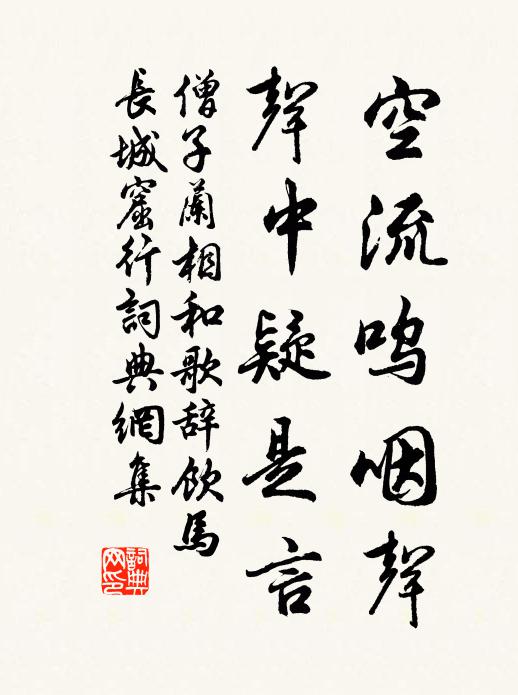 空流呜咽聲
聲中疑是言
僧子蘭相和歌辞飲馬
長城窟行詞典網集
詞典网印